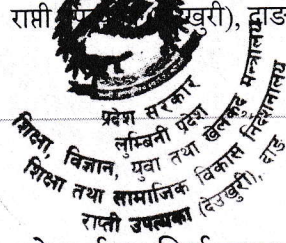 राप्ती
खुरी), दाङ
प्रदेश सरकार
लुम्बिनी प्रदेश
शिक्षा, विज्ञान, युवा तथा खेलकुद मन्त्रालय
शिक्षा तथा सामाजिक विकास निर्देशनालय
राप्ती उपत्यका (देउखुरी), दाङ